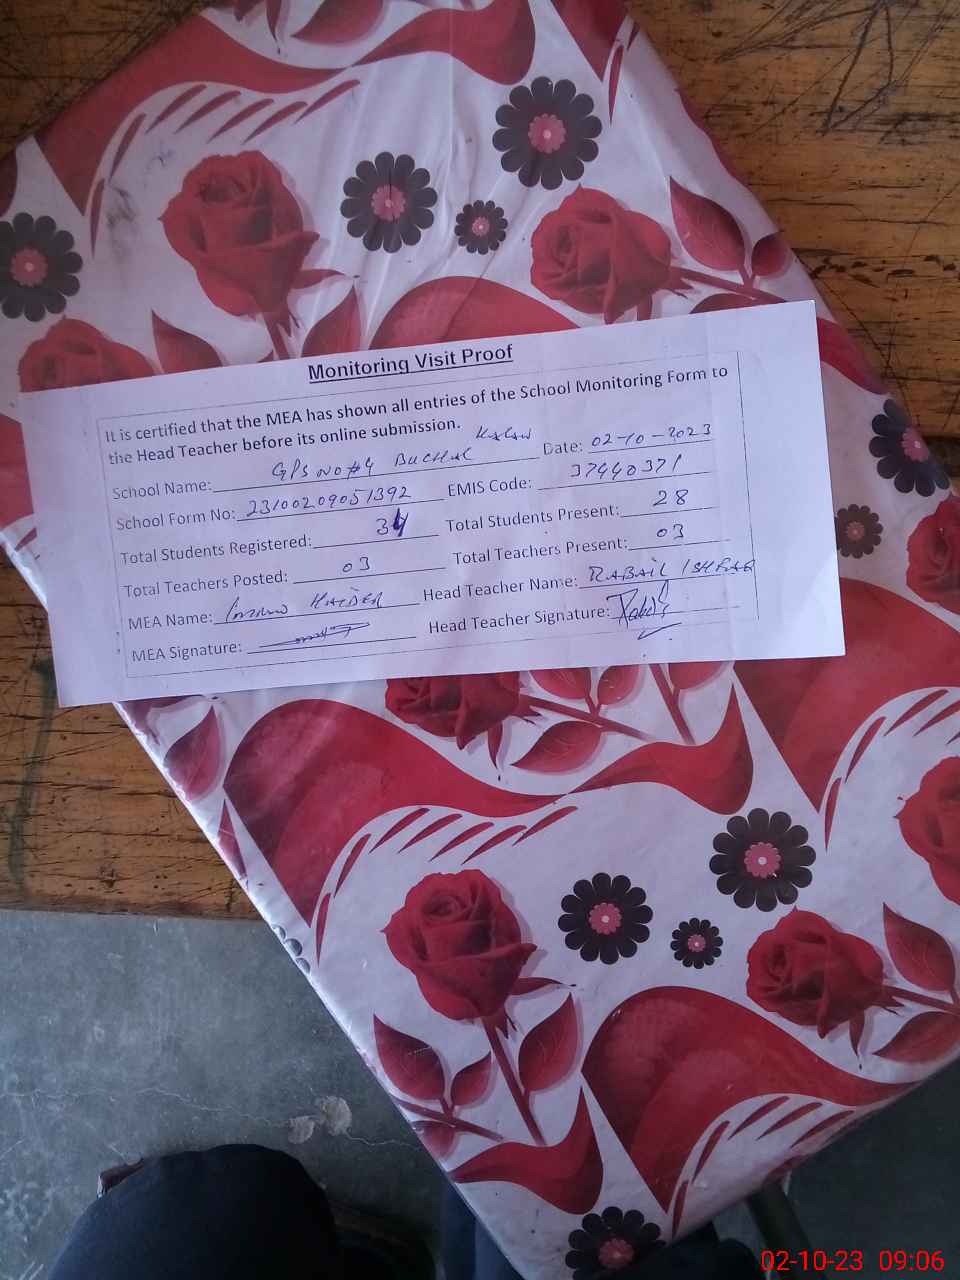 Monitoring Visit Proof
It is certified that the MEA has shown all entries of the School Monitoring Form to
the Head Teacher before its online submission.
School Name: GPS NO #4 BUCHAL Kalan Date: 02-10-2023
School Form No: 23100209051392 EMIS Code: 37440371
Total Students Registered: 34 Total Students Present: 28
Total Teachers Posted: 03 Total Teachers Present: 03
MEA Name: HAIDER Head Teacher Name: RABAIL ISHFAQ
MEA Signature: Head Teacher Signature:
02-10-23 09:06